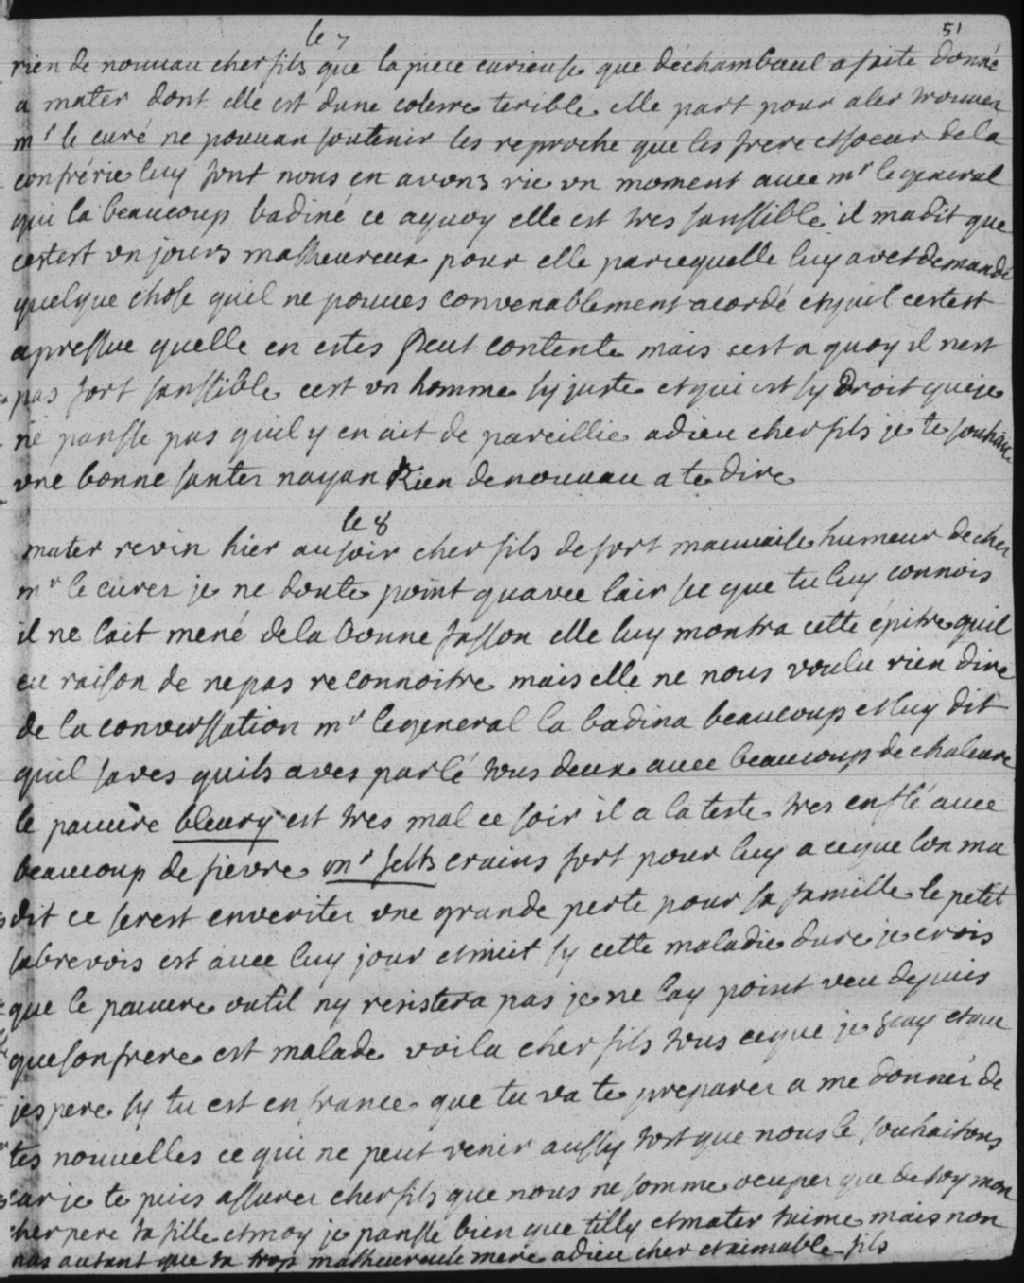 51
le 7
rien de nouvau cher fils que la piece curieuse que déchambaul a faite donné
a mater dont elle est dune colerre terible elle part pour aler trouver
mr le curé ne pouvan soutenir les reproche que les frere et soeur de la
confrérie luy font nous en avons rie un moment avec mr le general
qui la beaucoup badiné ce a quoy elle est tres sanssible il madit que
cestest un jours malheureux pour elle parcequelle luy avet demandé
quelque chose quil ne pouves convenablement acordé et quil cestest
apressue quelle en estes peut contente mais sest a quoy il nest
pas fort sanssible cest un homme sy juste et qui est sy droit que je
ne pansse pas quil y en ait de pareillie adieu cher fils je te souhaite
une bonne santer nayan Rien de nouvau a te dire
le 8
mater revin hier au soir cher fils de fort mauvaise humeur de cher
mr le curer je ne doute point quavec lair sec que tu luy connois
il ne lait mené de la bonne fasson elle luy montra cette épitre quil
eu raison de ne pas reconnoitre mais elle ne nous voulu rien dire
de la converssation mr le general la badina beaucoup et luy dit
quil saves quils aves parlé tous deux avec beaucoup de chaleure
le pauvre bleury est tres mal ce soir il a la teste tres enflé avec
beaucoup de fievre mr felts crains fort pour luy a ce que lon ma
dit ce serest en veriter une grande perte pour sa famille le petit
sabrevois est avec luy jour et nuit sy cette maladie dure je crois
que le pauvre outil ny resistera pas je ne lay point veu depuis
que son frere est malade voila cher fils tous ce que je scay et que
jespere sy tu est en france que tu va te preparer a me donner de
tes nouvelles ce qui ne peut venir aussy tost que nous le souhaitons
car je te puis assurer cher fils que nous ne somme ocuper que de toy mon
cher pere ta fille et moy je pansse bien que tilly et mater taime mais non
pas autant que ta trop malheureuse mere adieu cher et aimable fils